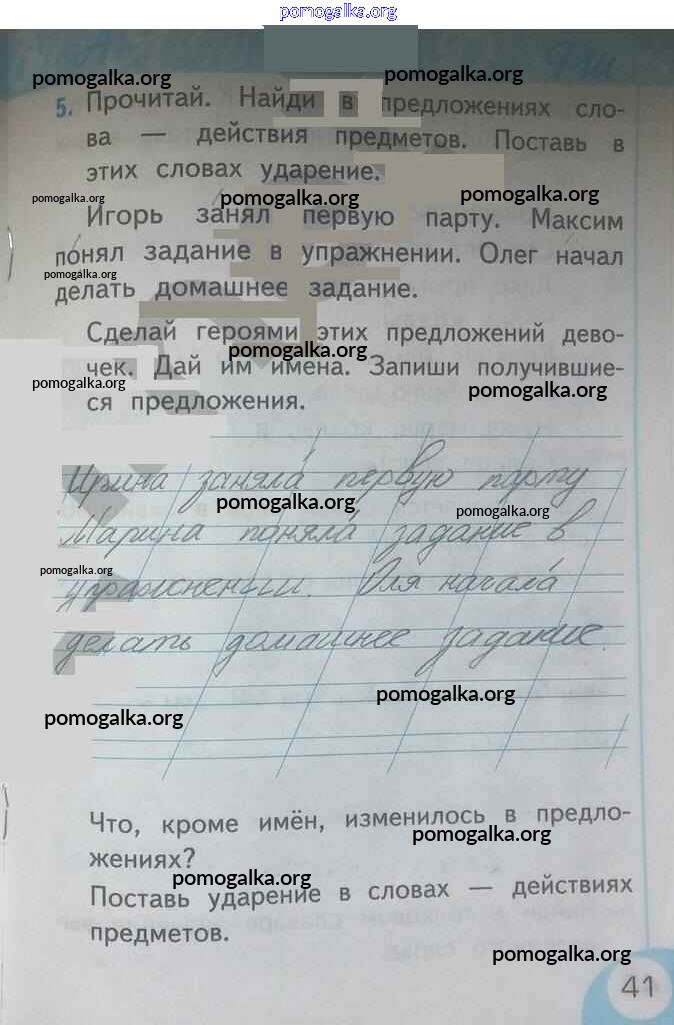 pomogalka.org
pomogalka.org pomogalka.org
5. Прочитай. Найди в предложениях сло-
ва — действия предметов. Поставь в
этих словах ударение.
pomogalka.org pomogalka.org pomogalka.org
Игорь за́нял первую парту. Максим
по́нял задание в упражнении. Олег на́чал
pomogalka.org
делать домашнее задание.
Сделай героями этих предложений дево-
pomogalka.org
чек. Дай им имена. Запиши получившие-
pomogalka.org pomogalka.org
ся предложения.
Ирина заняла́ первую парту
pomogalka.org pomogalka.org
Марина поняла́ задание в
pomogalka.org
упражнении. Оля начала́
делать домашнее задание.
pomogalka.org
pomogalka.org
Что, кроме имён, изменилось в предло-
pomogalka.org
жениях?
pomogalka.org
Поставь ударение в словах — действиях
предметов.
pomogalka.org
41